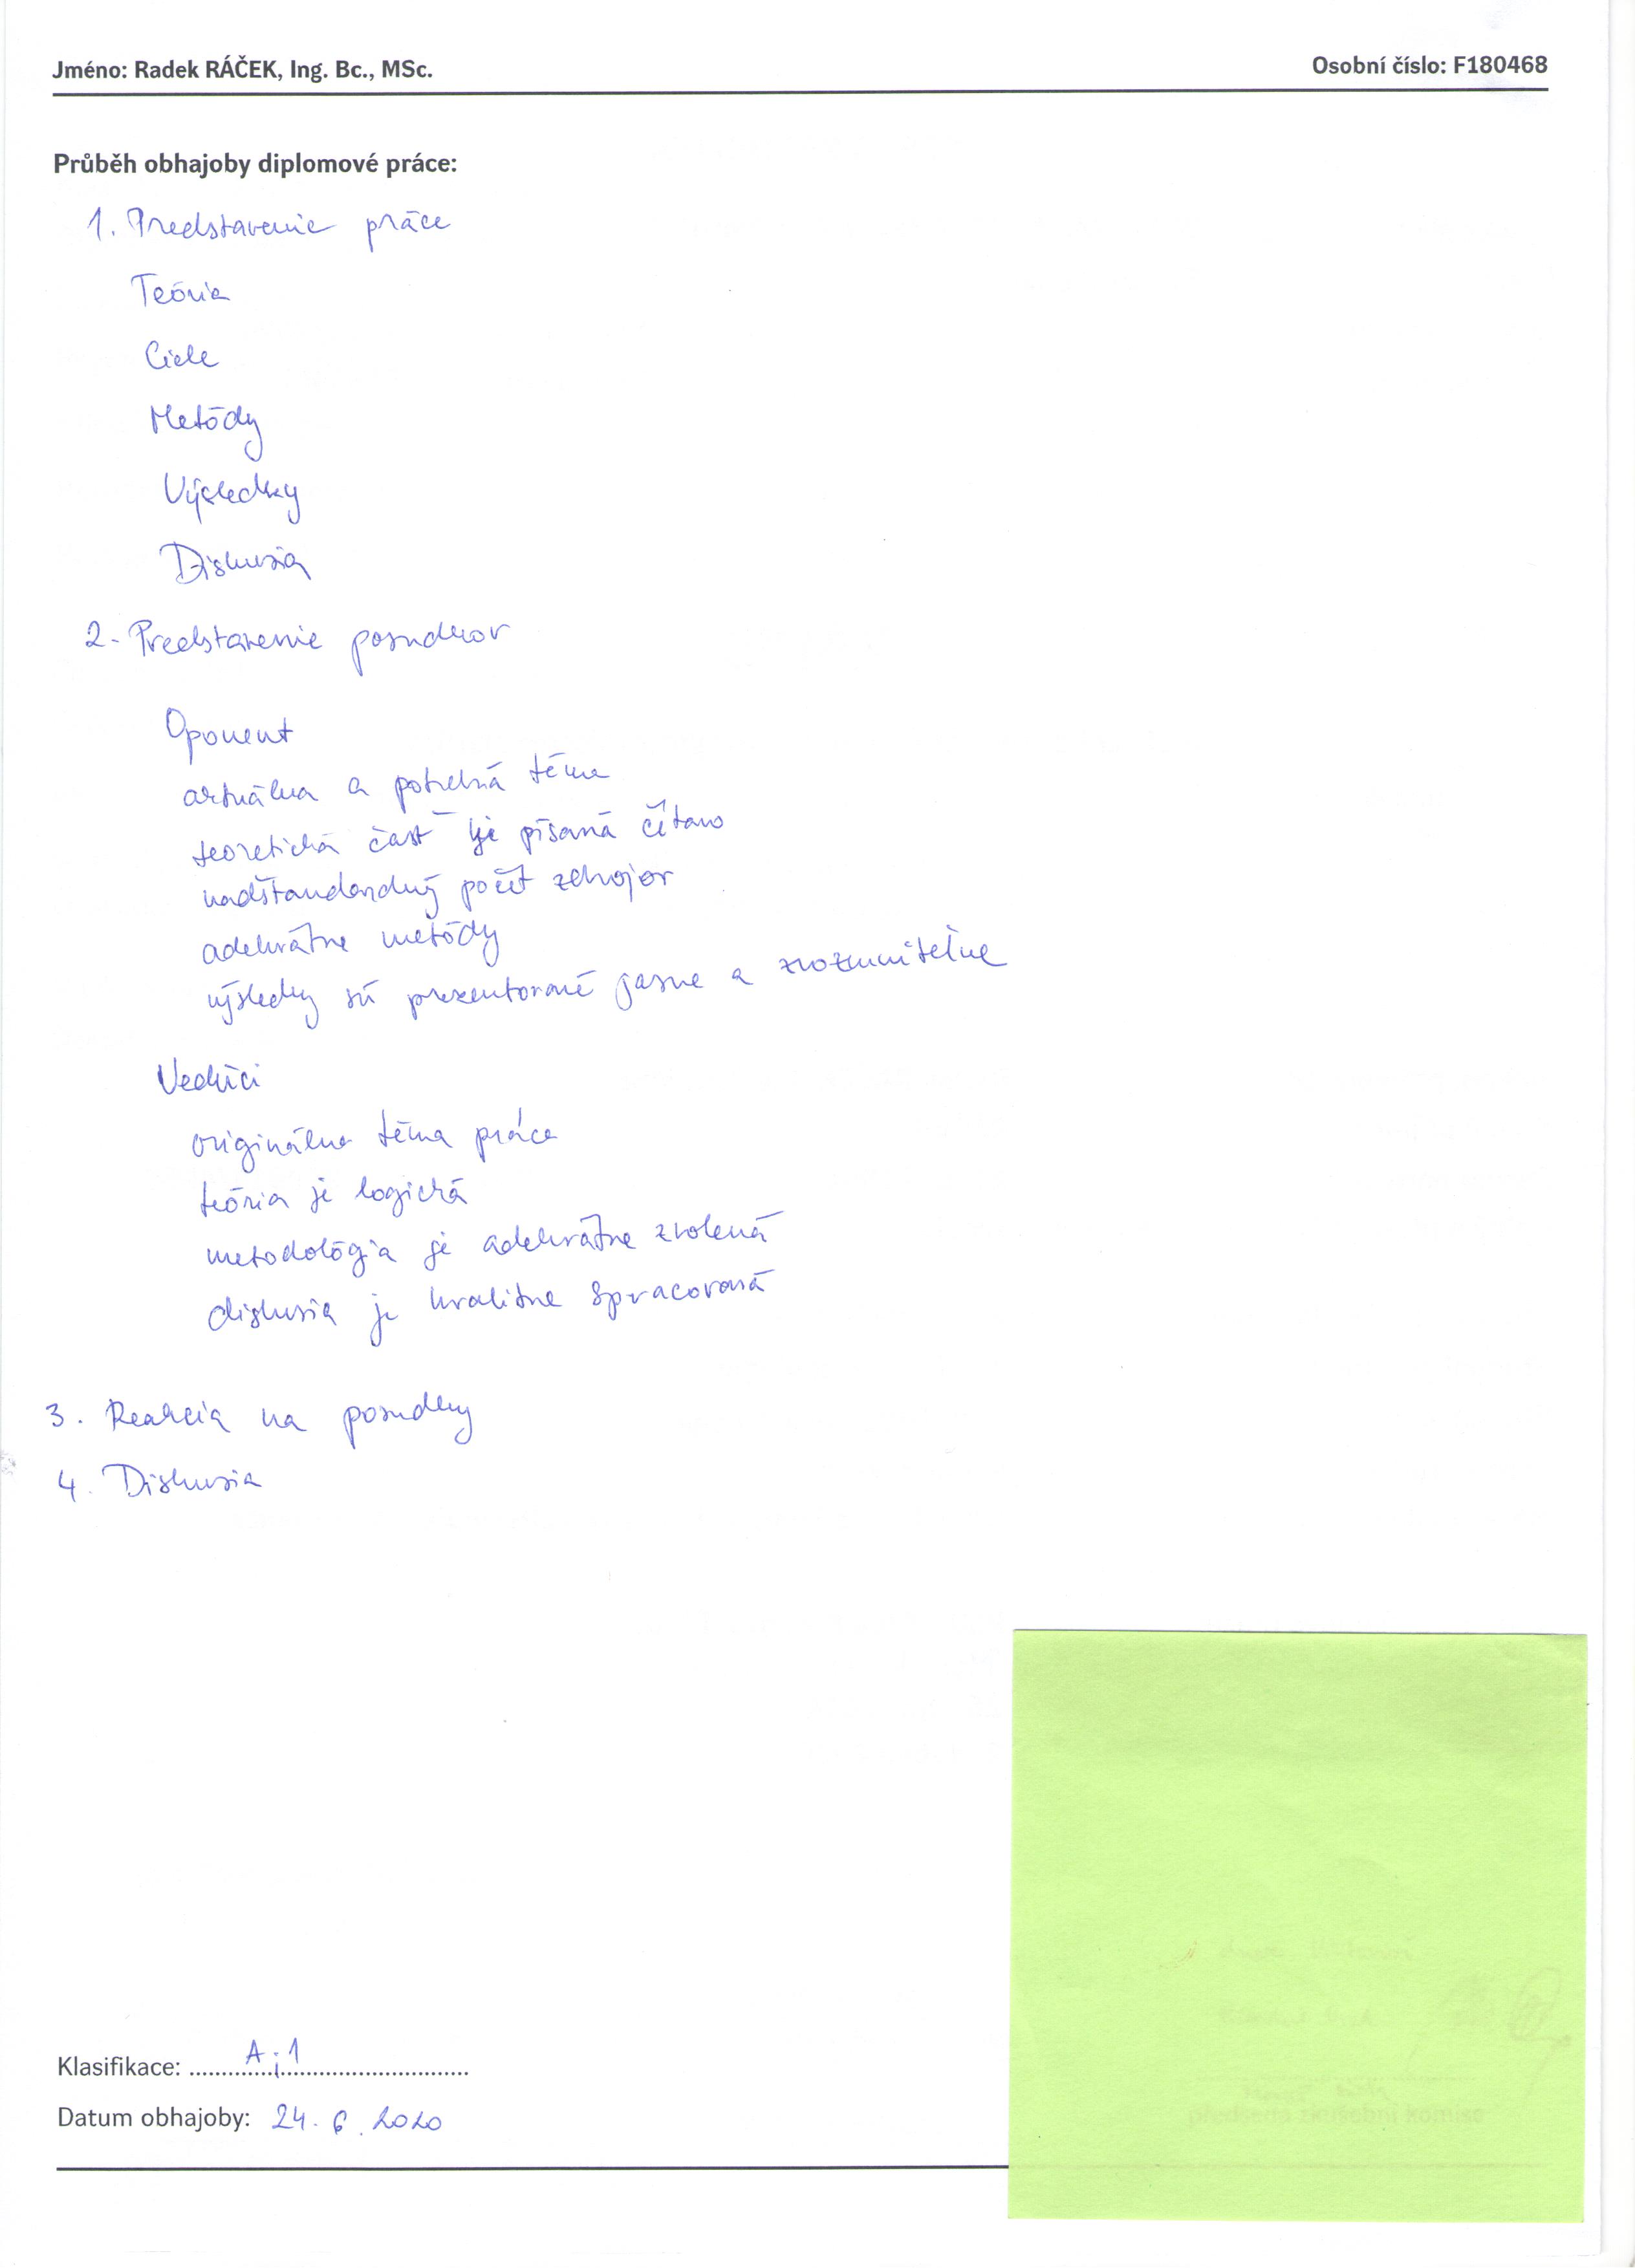 Jméno: Radek RÁČEK, Ing. Bc., MSc.
Osobní číslo: F180468
Průběh obhajoby diplomové práce:
1. Predstavenie práce
Teória
Ciele
Metódy
Výsledky
Diskusia
2. Predstavenie posudkov
Oponent
aktuálna a potrebná téma
teoretická časť je písaná čítavo
nadštandardný počet zdrojov
adekvátne metódy
výsledky sú prezentované jasne a zrozumiteľne
Vedúci
originálna téma práce
teória je logická
metodológia je adekvátne zvolená
diskusia je kvalitne spracovaná
3. Reakcia na posudky
4. Diskusia
Klasifikace: A; 1
Datum obhajoby: 24. 6. 2020
předseda zkušební komise